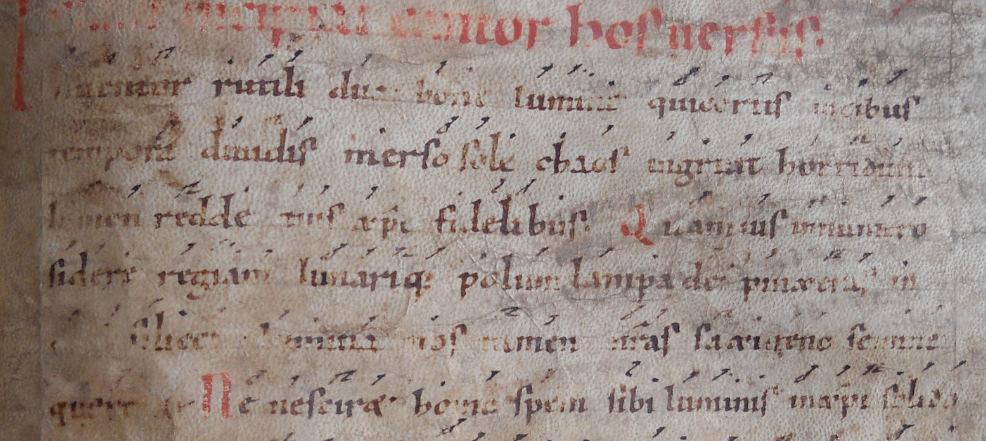 cantor hos uersus.
rutili dux bone luminis qui certis uicibus
tempora diuidis merso sole chaos ingruit horridum
lumen redde tuis xp̄e fidelibus. Quamuis innumero
sidere regiam lunariq; polum lampade pinxeris, in
silicis lumina nos tamen saxigeno semine
querere Ne nesciret homo spem sibi luminis in xp̄i solido